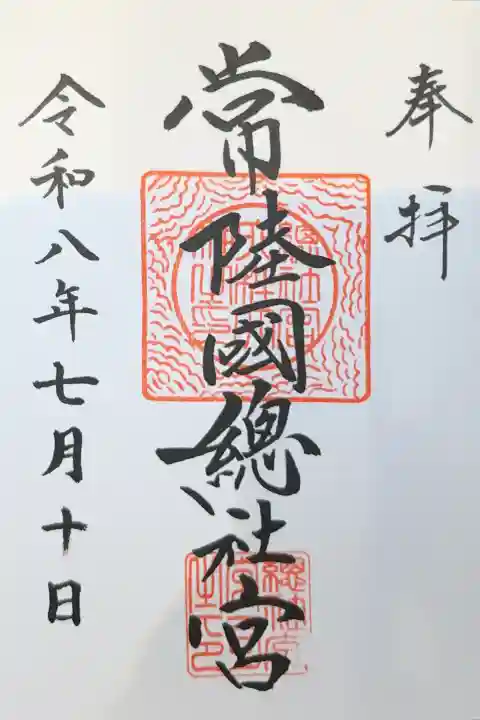 奉拝
常陸國總社宮
令和八年七月十日